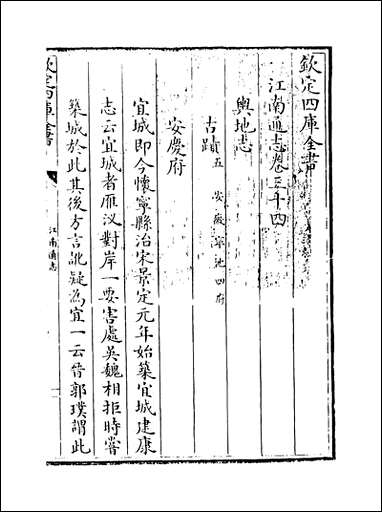 欽定四庫全書
江南通志卷三十四
輿地志
古蹟五 安徽寧池四府
安慶府
宜城即今懷寧縣治宋景定元年始築宜城建康
志云宜城者雁汊對岸一要害處吳魏相拒時嘗
築城於此其後方言訛疑為宜一云晉郭璞謂此
欽定四庫全書
江南通志